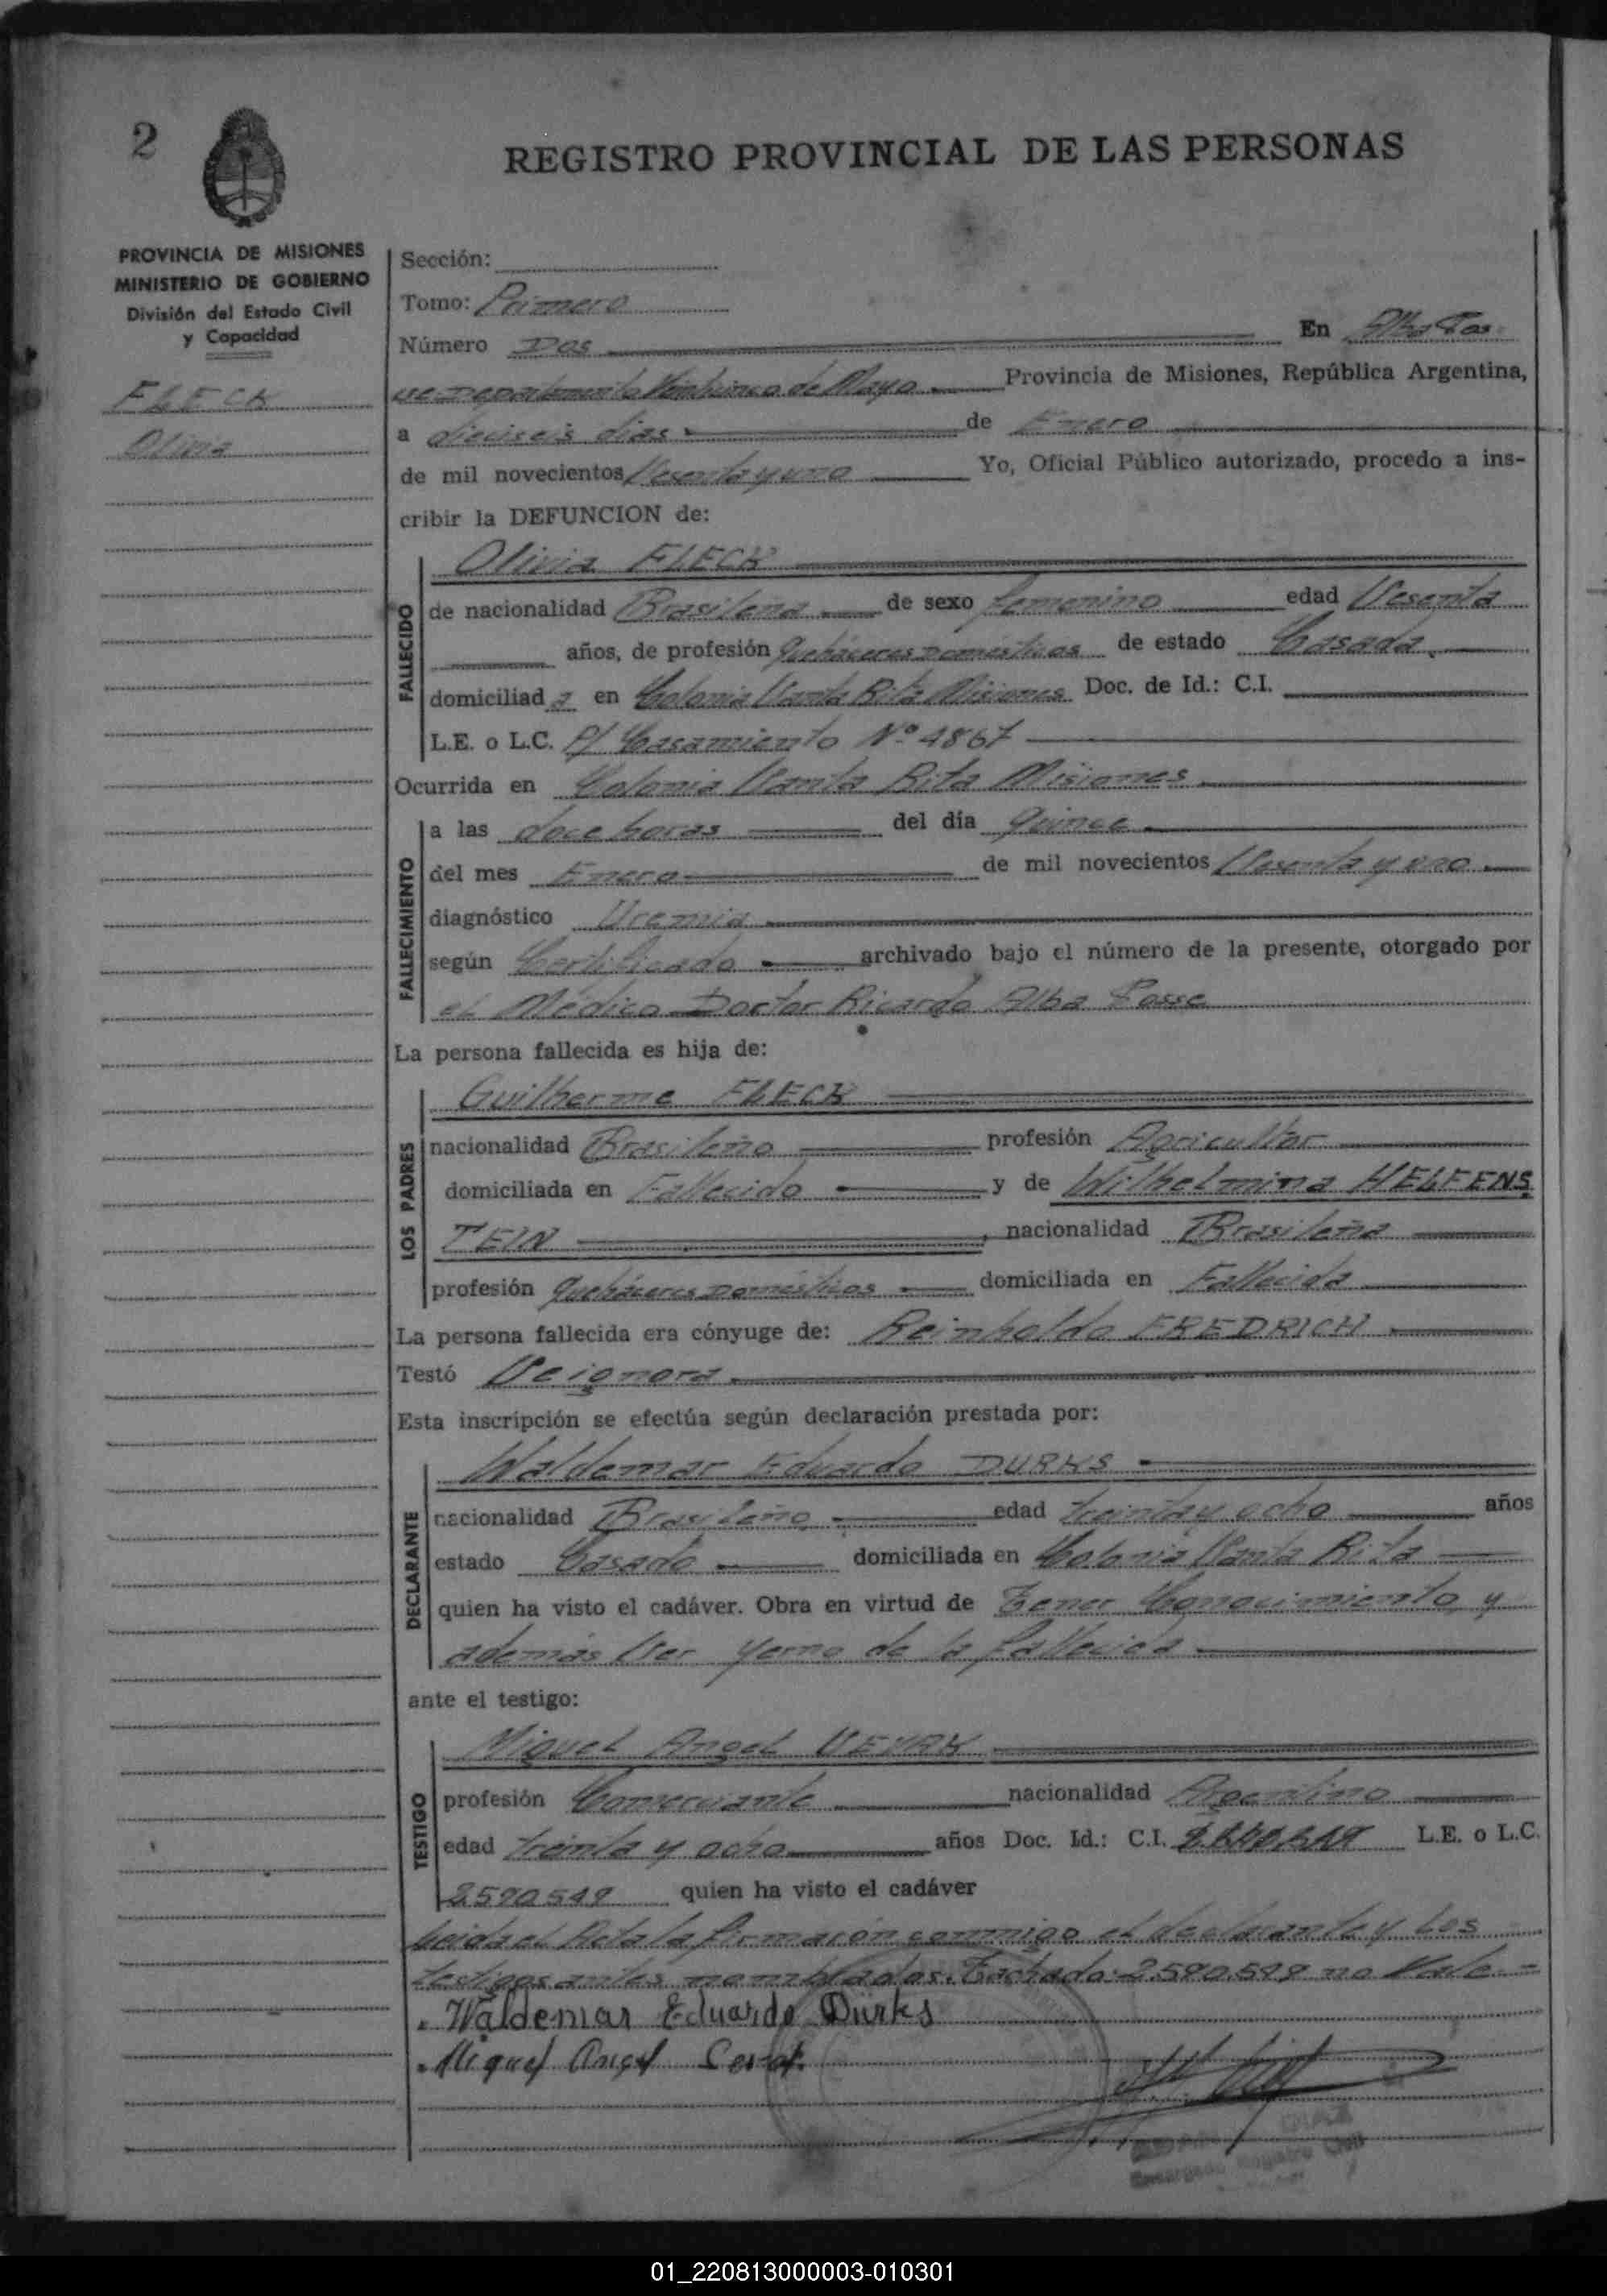 2
REGISTRO PROVINCIAL DE LAS PERSONAS
PROVINCIA DE MISIONES
MINISTERIO DE GOBIERNO
División del Estado Civil
y Capacidad
FLECK
Olivia
Sección:
Tomo: Primero
Número Dos En Alba Pos
se Departamento Veinticinco de Mayo Provincia de Misiones, República Argentina,
a dieciseis dias de Enero
de mil novecientos Sesenta y uno Yo, Oficial Público autorizado, procedo a ins-
cribir la DEFUNCION de:
Olivia FLECK
FALLECIDO
de nacionalidad Brasileña de sexo femenino edad Sesenta
años, de profesión Quehaceres Domésticos de estado Casada.
domiciliad a en Colonia Santa Rita Misiones Doc. de Id.: C.I.
L.E. o L.C. P/ Casamiento Nº 4867
Ocurrida en Colonia Santa Rita Misiones
FALLECIMIENTO
a las doce horas del día Quince
del mes Enero de mil novecientos Sesenta y uno
diagnóstico Uremia
según Certificado archivado bajo el número de la presente, otorgado por
el Médico Doctor Ricardo Alba Posse
La persona fallecida es hija de:
LOS PADRES
Guilherme FLECK
nacionalidad Brasileño profesión Agricultor
domiciliada en Fallecido y de Wilhelmina HELFENS
TEIN, nacionalidad Brasileña
profesión Quehaceres Domésticos domiciliada en Fallecida
La persona fallecida era cónyuge de: Reinholdo FREDRICH
Testó Se ignora
Esta inscripción se efectúa según declaración prestada por:
DECLARANTE
Waldemar Eduardo DURKS
nacionalidad Brasileño edad treinta y ocho años
estado Casado domiciliada en Colonia Santa Rita
quien ha visto el cadáver. Obra en virtud de Tener Conocimiento y
además Ser yerno de la fallecida
ante el testigo:
TESTIGO
Miguel Angel
profesión Comerciante nacionalidad Argentino
edad treinta y ocho años Doc. Id.: C.I. L.E. o L.C.
2590549 quien ha visto el cadáver
Leida el Acta la firmaron conmigo el declarante y los
testigos antes nombrados. Tachado: 2.590.549 no Vale.-
Waldemar Eduardo Dürks
Miguel Angel
Encargado Registro Civil
01_220813000003-010301